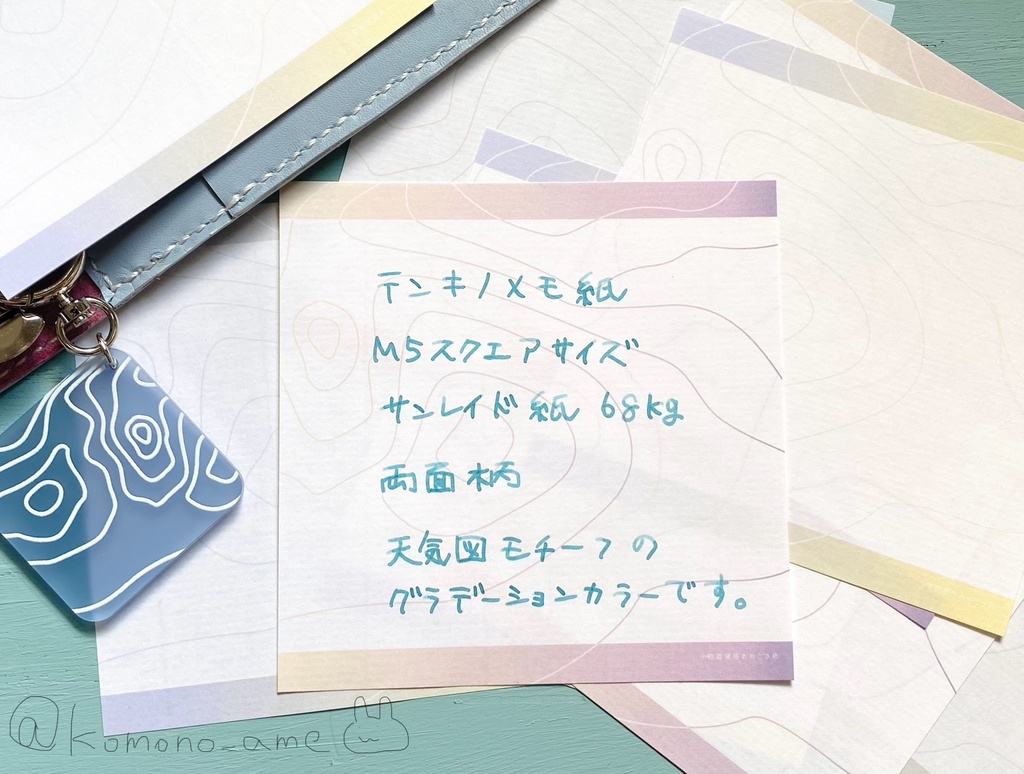 テンキノメモ紙
M5スクエアサイズ
サンレイド紙 68kg
両面柄
天気図モチーフの
グラデーションカラーです。
@komono_ame